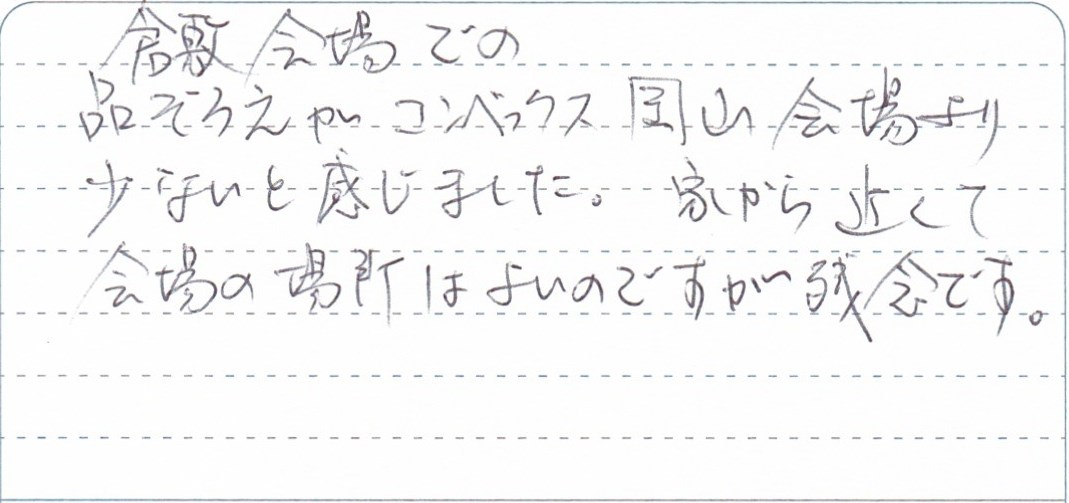 倉敷会場での
品ぞろえがコンベックス岡山会場より
少ないと感じました。家から近くて
会場の場所はよいのですが残念です。